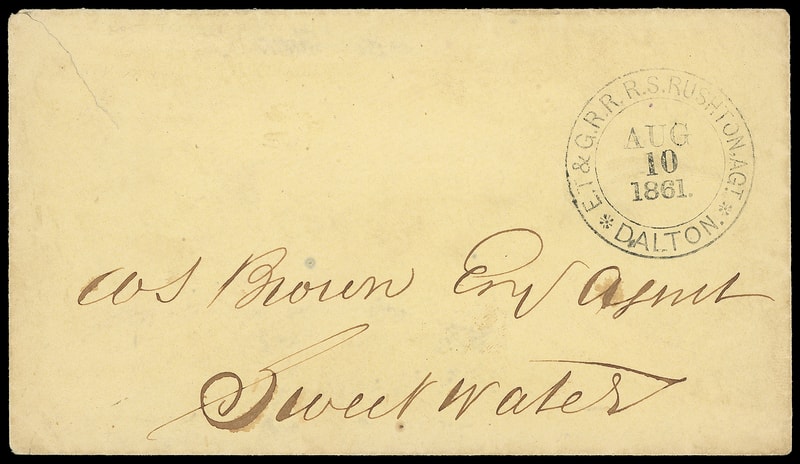 E.T & G.R.R. R.S. RUSHTON, AGT.
AUG
10
1861.
* DALTON. *
Brown Agent
Sweetwater